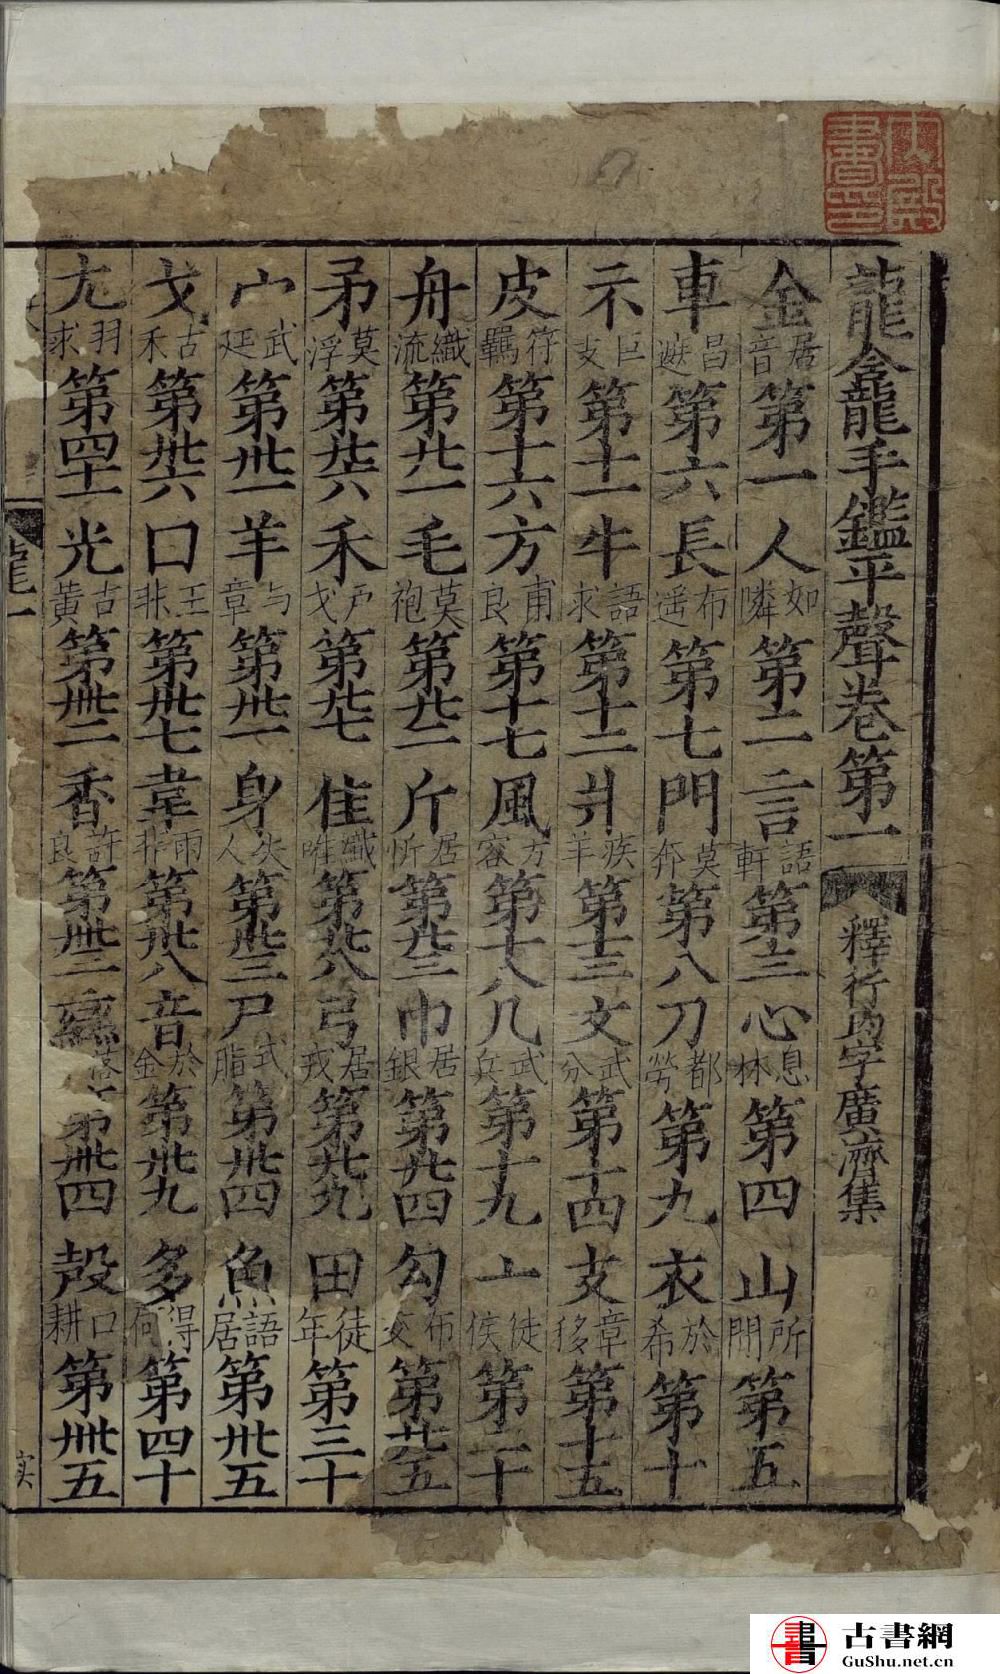 龍龕手鑑平聲卷第一 釋行均字廣濟集
金居音第一 人如隣第二 言語軒第三 心息林第四 山所間第五
車昌遮第六 長布遥第七 門莫奔第八 刀都勞第九 衣於希第十
示巨支第十一 牛語求第十二 爿疾羊第十三 文武分第十四 支章移第十五
皮符羈第十六 方甫良第十七 風方容第十八 几武兵第十九 亠徒侯第二十
舟織流第廿一 毛莫袍第廿二 斤居忻第廿三 巾居銀第廿四 勹布交第廿五
矛莫浮第廿六 禾戸戈第廿七 隹織唯第廿八 弓居戎第廿九 田徒年第三十
宀武延第卅一 羊与章第卅一 身失人第卅三 尸式脂第卅四 魚語居第卅五
戈古禾第卅六 囗王非第卅七 韋雨非第卅八 音於金第卅九 多得何第四十
尢羽求第四十一 光古黃第卌二 香許良第卌三 落第卌四 殸口耕第卌五
龍一
大殿書印
古書網
GuShu.net.cn